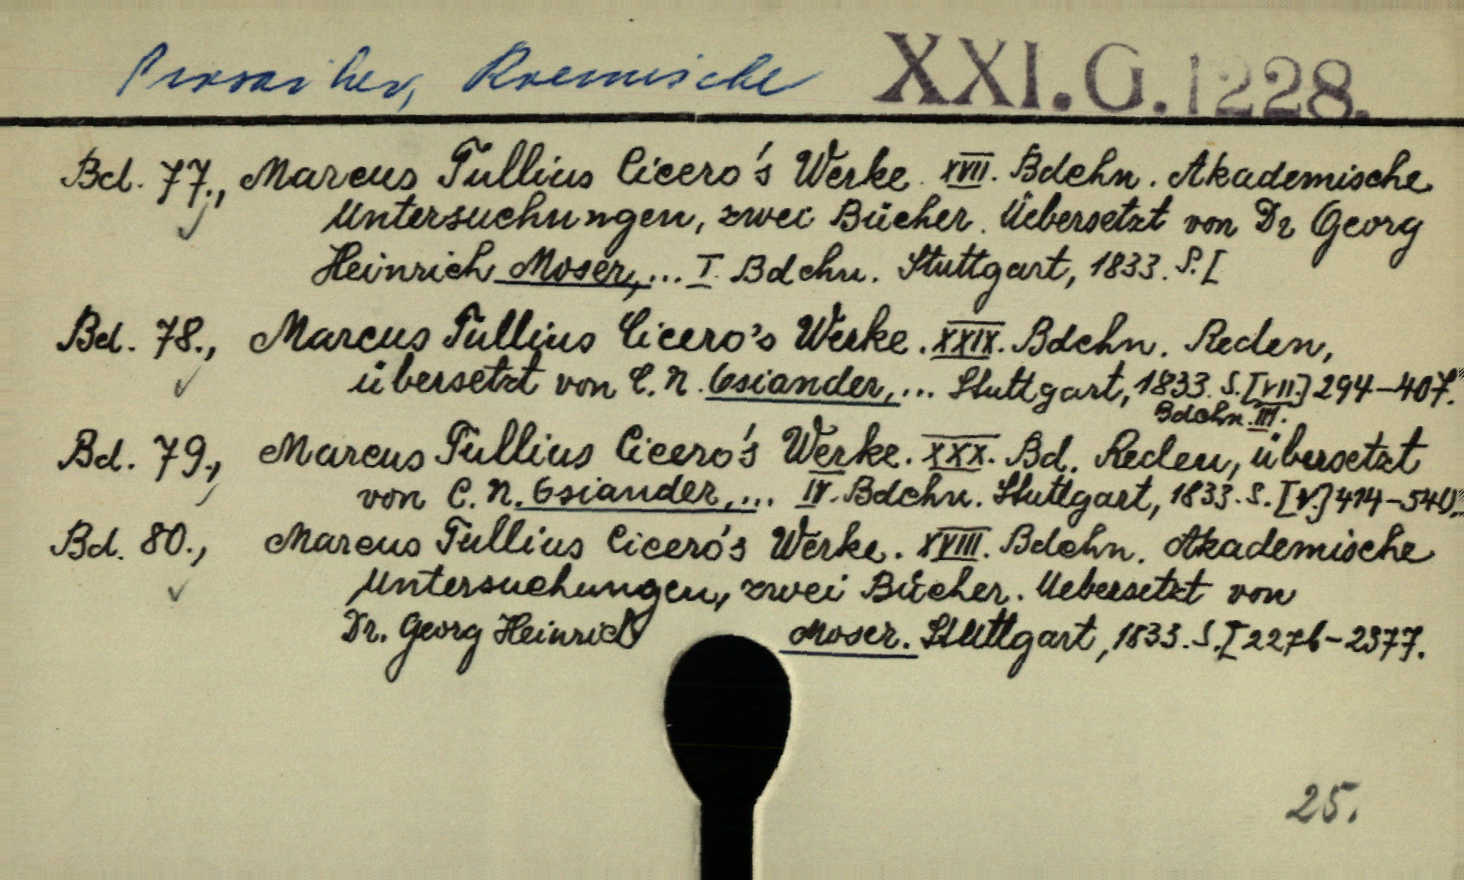 Prosaiker, Roemische XXI.G.1228.
Bd. 77., Marcus Tullius Cicero's Werke. XVII. Bdchn. Akademische
Untersuchungen, zwei Bücher. Uebersetzt von Dr Georg
Heinrich Moser,... I. Bdchn. Stuttgart, 1833. S. [
Bd. 78., Marcus Tullius Cicero's Werke. XXIX. Bdchn. Reden,
übersetzt von C. N. Osiander,... Stuttgart, 1833. S. [VII.] 294-407.
Bdchn. III.
Bd. 79., Marcus Tullius Cicero's Werke. XXX. Bd. Reden, übersetzt
von C. N. Osiander,... IV. Bdchn. Stuttgart, 1833. S. [V.] 414-540.
Bd. 80., Marcus Tullius Cicero's Werke. XVIII. Bdchn. Akademische
Untersuchungen, zwei Bücher. Uebersetzt von
Dr. Georg Heinrich Moser. Stuttgart, 1833. S. [2276-2377.
25.